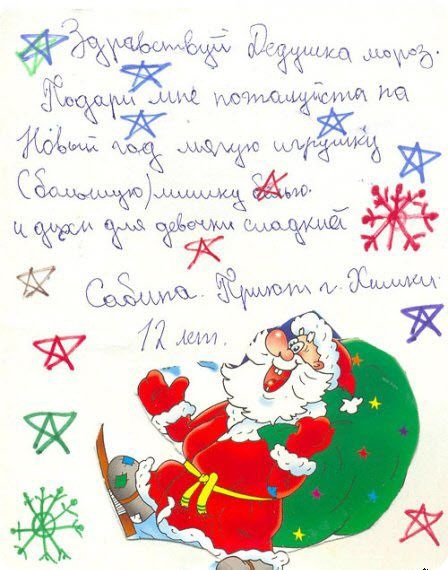 Здравствуй Дедушка мороз.
Подари мне пожалуйста на
Новый год мягкую игрушку
(большую) мишку белую.
и духи для девочки сладкий
Сабина. Приют г. Химки.
12 лет.